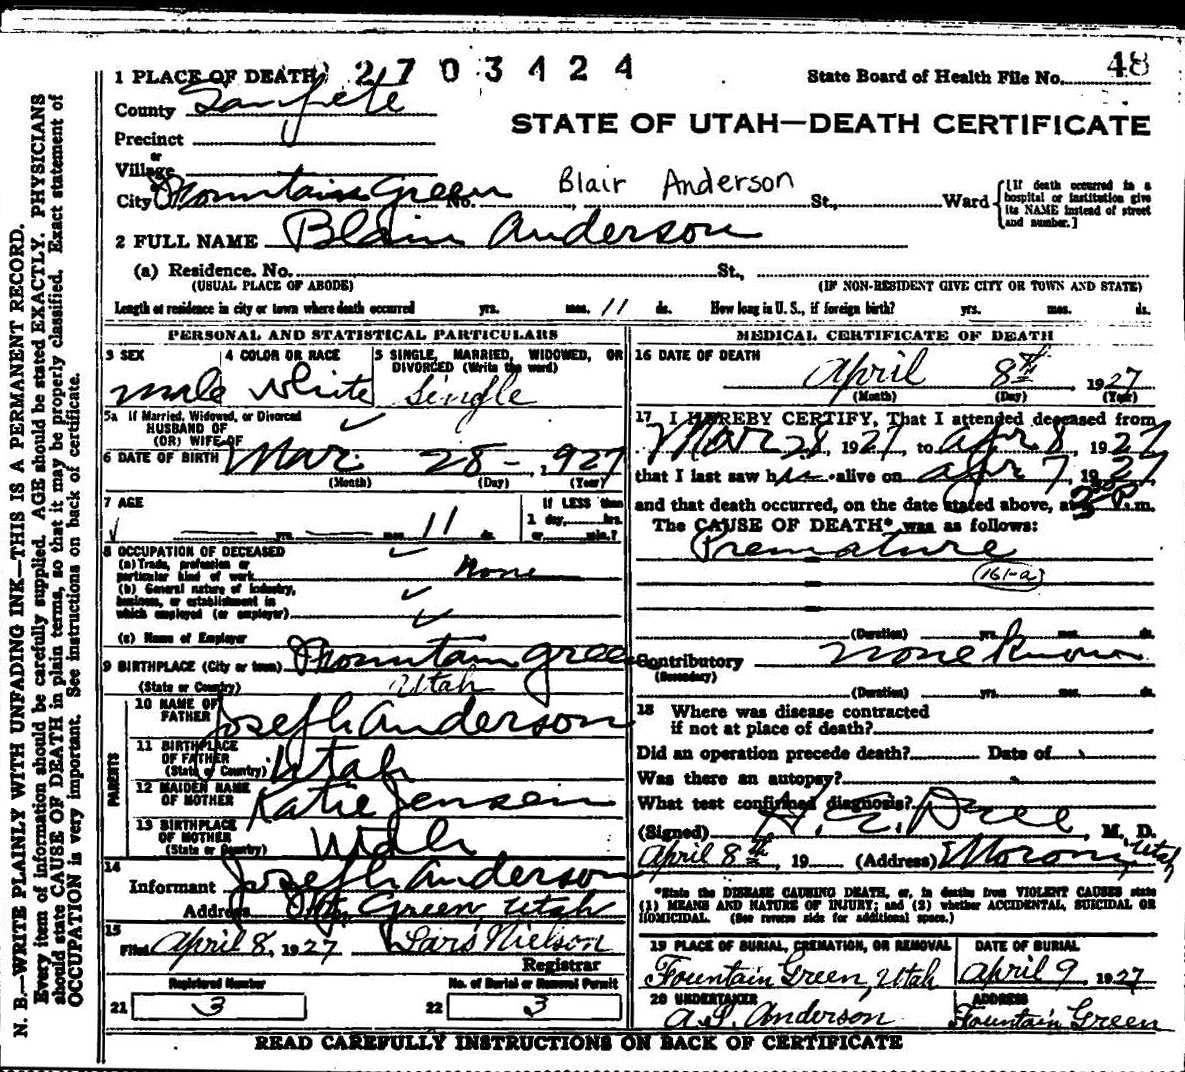 1 PLACE OF DEATH 2 7 0 3 4 2 4
State Board of Health File No. 48
County Sanpete
STATE OF UTAH—DEATH CERTIFICATE
Precinct
or
Village
City Mountain Green No. Blair Anderson St., Ward
[If death occurred in a hospital or institution give its NAME instead of street and number.]
2 FULL NAME Blain Anderson
(a) Residence. No. St.,
(USUAL PLACE OF ABODE) (IF NON-RESIDENT GIVE CITY OR TOWN AND STATE)
Length of residence in city or town where death occurred yrs. mos. 11 ds. How long in U. S., if foreign birth? yrs. mos. ds.
PERSONAL AND STATISTICAL PARTICULARS
3 SEX 4 COLOR OR RACE 5 SINGLE, MARRIED, WIDOWED, OR
DIVORCED (Write the word)
male white Single
5a If Married, Widowed, or Divorced
HUSBAND OF
(OR) WIFE OF
6 DATE OF BIRTH Mar. 28 - , 1927
(Month) (Day) (Year)
7 AGE If LESS than
yrs. mos. 11 ds. 1 day, hrs.
or min.?
8 OCCUPATION OF DECEASED
(a) Trade, profession or
particular kind of work None
(b) General nature of industry,
business, or establishment in
which employed (or employer)
(c) Name of Employer
9 BIRTHPLACE (City or town) Mountain Green
(State or Country) Utah
PARENTS
10 NAME OF
FATHER Joseph Anderson
11 BIRTHPLACE
OF FATHER
(State or Country) Utah
12 MAIDEN NAME
OF MOTHER Katie Jensen
13 BIRTHPLACE
OF MOTHER
(State or Country) Utah
14
Informant Joseph Anderson
Address Mtn Green, Utah
15
Filed April 8, 1927 Lars Nielson
Registrar
Registered Number No. of Burial or Removal Permit
21 3 22 3
MEDICAL CERTIFICATE OF DEATH
16 DATE OF DEATH
April 8th, 1927
(Month) (Day) (Year)
17 I HEREBY CERTIFY, That I attended deceased from
Mar 28, 1927 to Apr 8, 1927
that I last saw him alive on Apr 7, 1927
and that death occurred, on the date stated above, at P.m.
The CAUSE OF DEATH* was as follows:
Premature
(161-a)
(Duration) yrs. mos. ds.
Contributory none known
(Secondary)
(Duration) yrs. mos. ds.
18 Where was disease contracted
if not at place of death?
Did an operation precede death? Date of
Was there an autopsy?
What test confirmed diagnosis?
(Signed) , M. D.
April 8th, 19 (Address) Moroni, Utah
*State the DISEASE CAUSING DEATH, or, in deaths from VIOLENT CAUSES state
(1) MEANS AND NATURE OF INJURY; and (2) whether ACCIDENTAL, SUICIDAL OR
HOMICIDAL. (See reverse side for additional space.)
19 PLACE OF BURIAL, CREMATION, OR REMOVAL DATE OF BURIAL
Fountain Green, Utah April 9 1927
20 UNDERTAKER ADDRESS
A. L. Anderson Fountain Green
READ CAREFULLY INSTRUCTIONS ON BACK OF CERTIFICATE
N. B.—WRITE PLAINLY WITH UNFADING INK—THIS IS A PERMANENT RECORD.
Every item of information should be carefully supplied. AGE should be stated EXACTLY. PHYSICIANS
should state CAUSE OF DEATH in plain terms, so that it may be properly classified. Exact statement of
OCCUPATION is very important. See instructions on back of certificate.